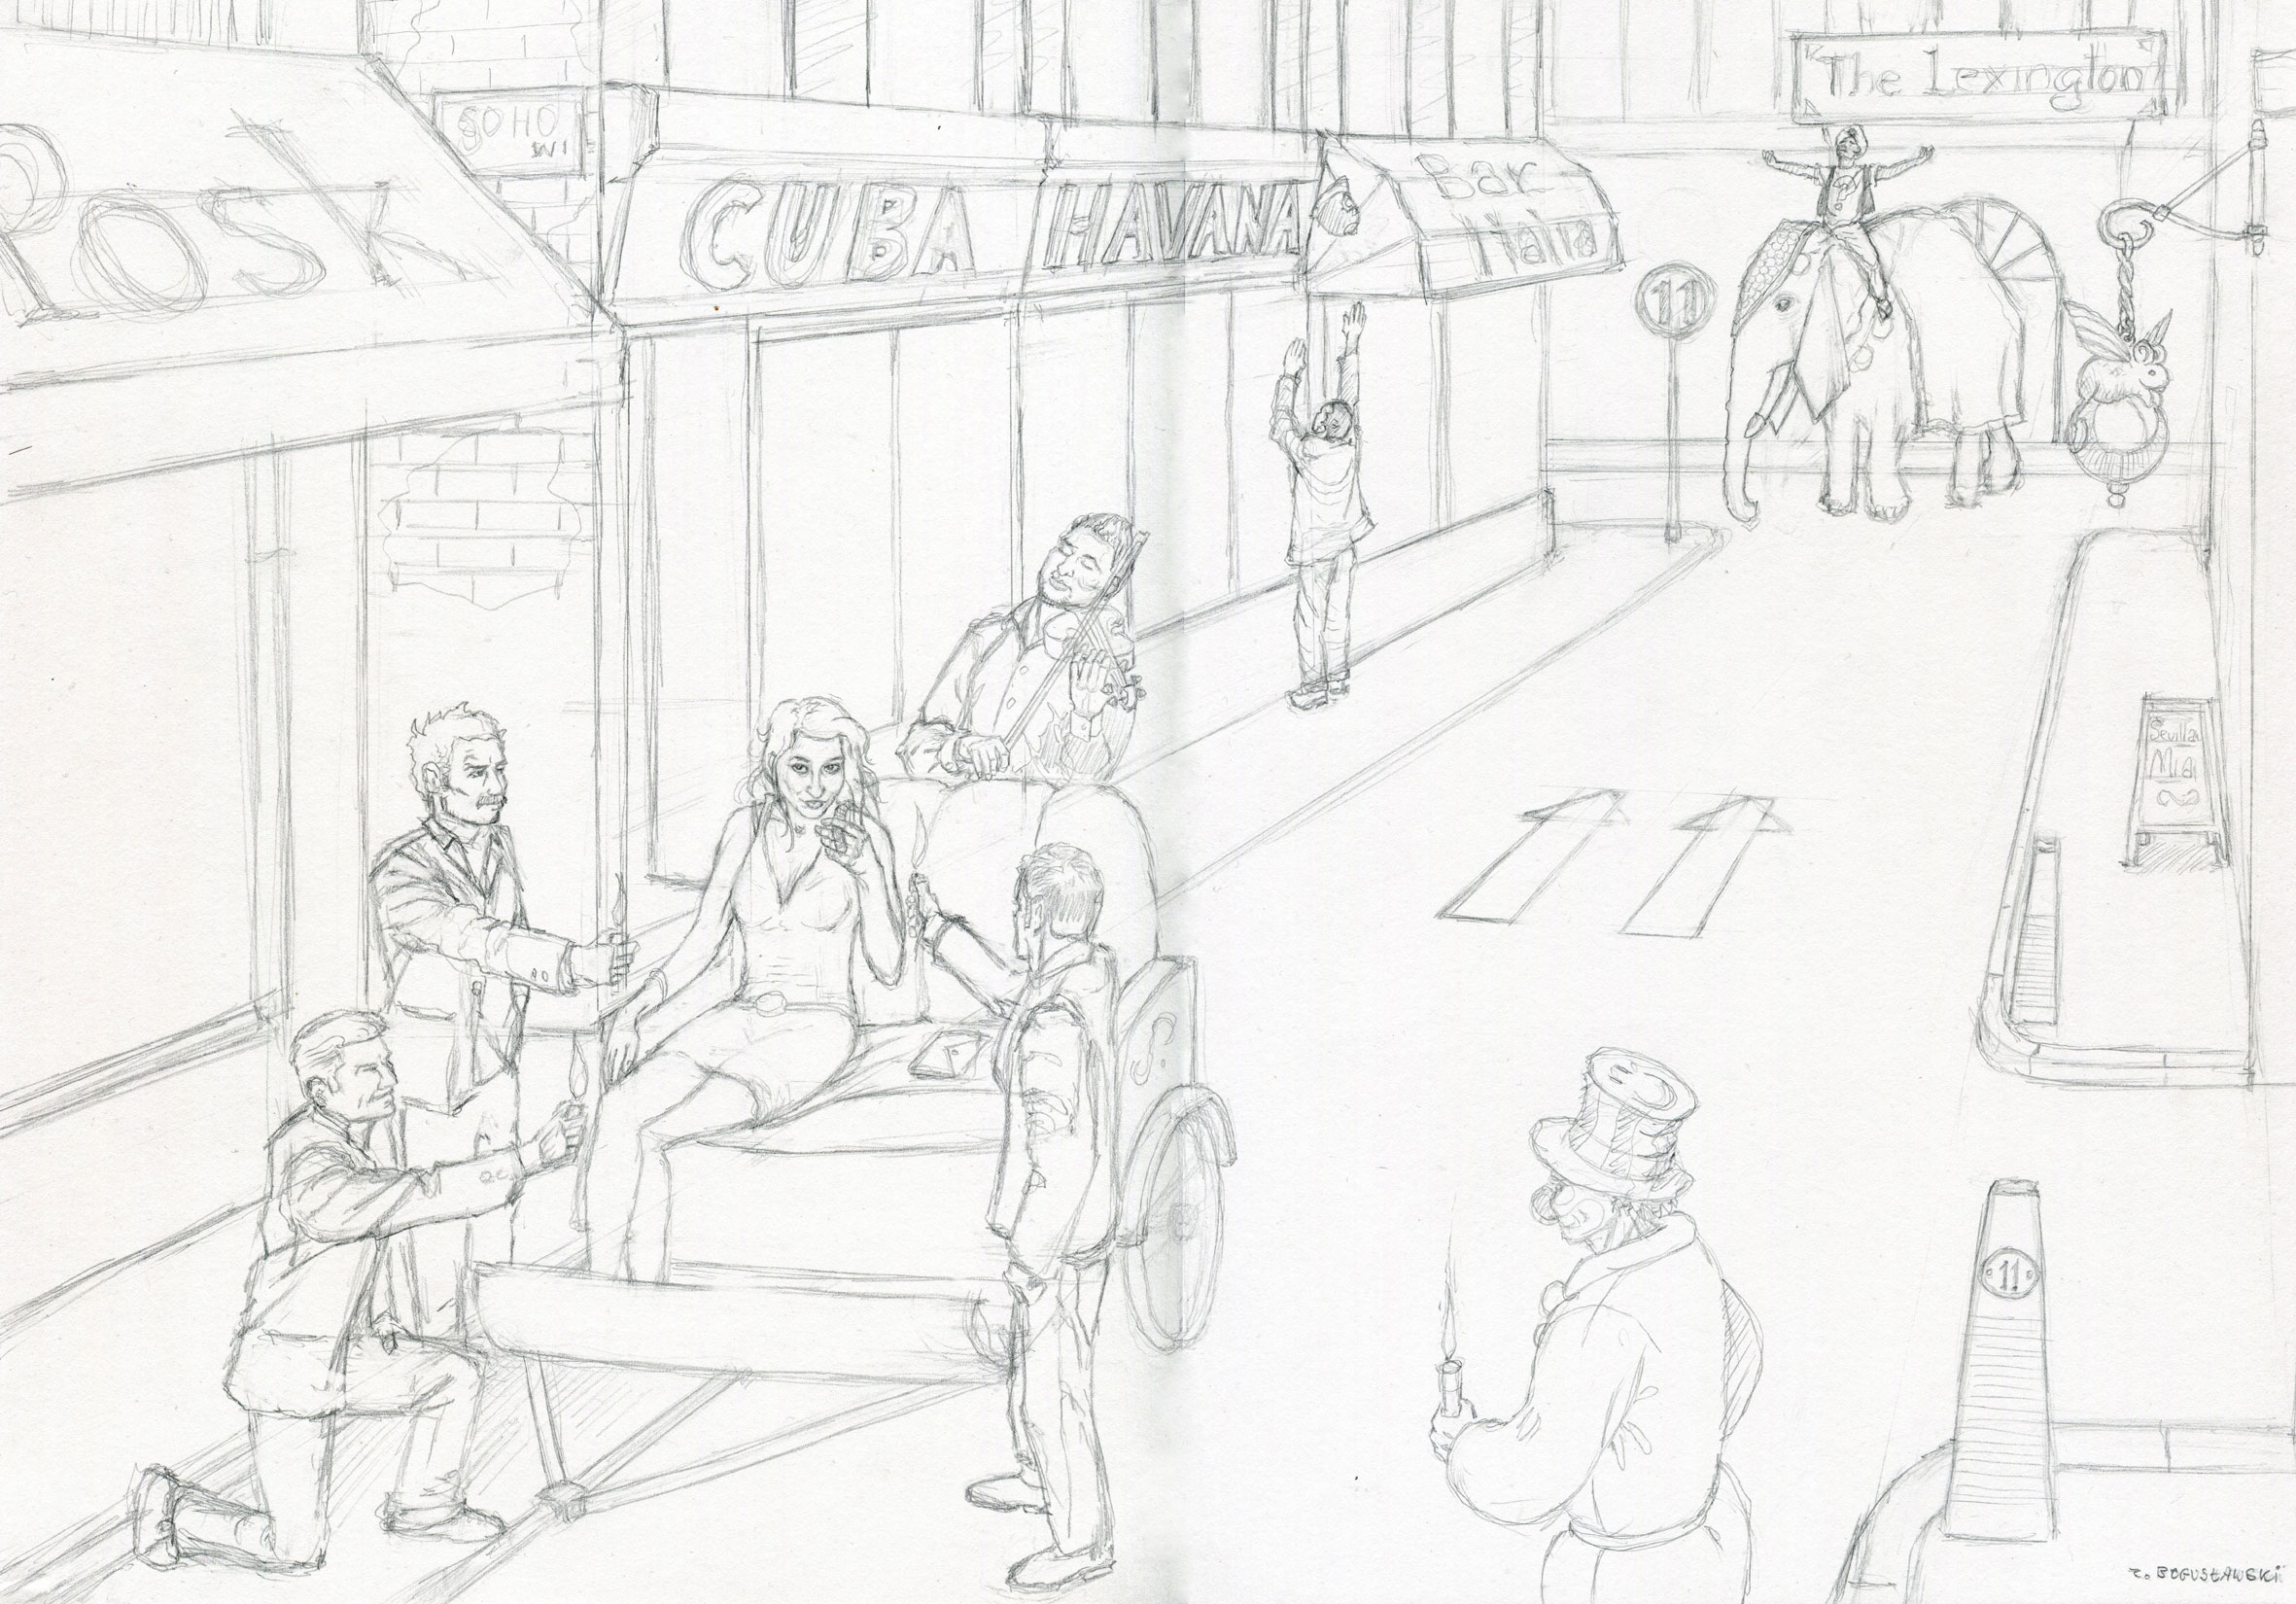 Rosk
SOHO
W1
CUBA HAVANA
Bar
Italia
The Lexington
11
Sevilla
Mia
11
Z. BOGUSŁAWSKI